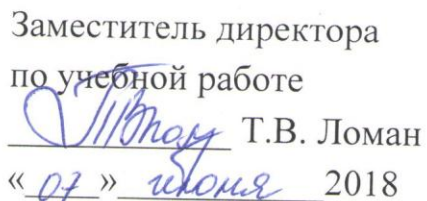 Заместитель директора
по учебной работе
Т.В. Ломан
«07» июня 2018